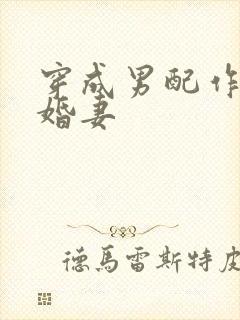 穿成男配作
婚妻
德馬雷斯特皮